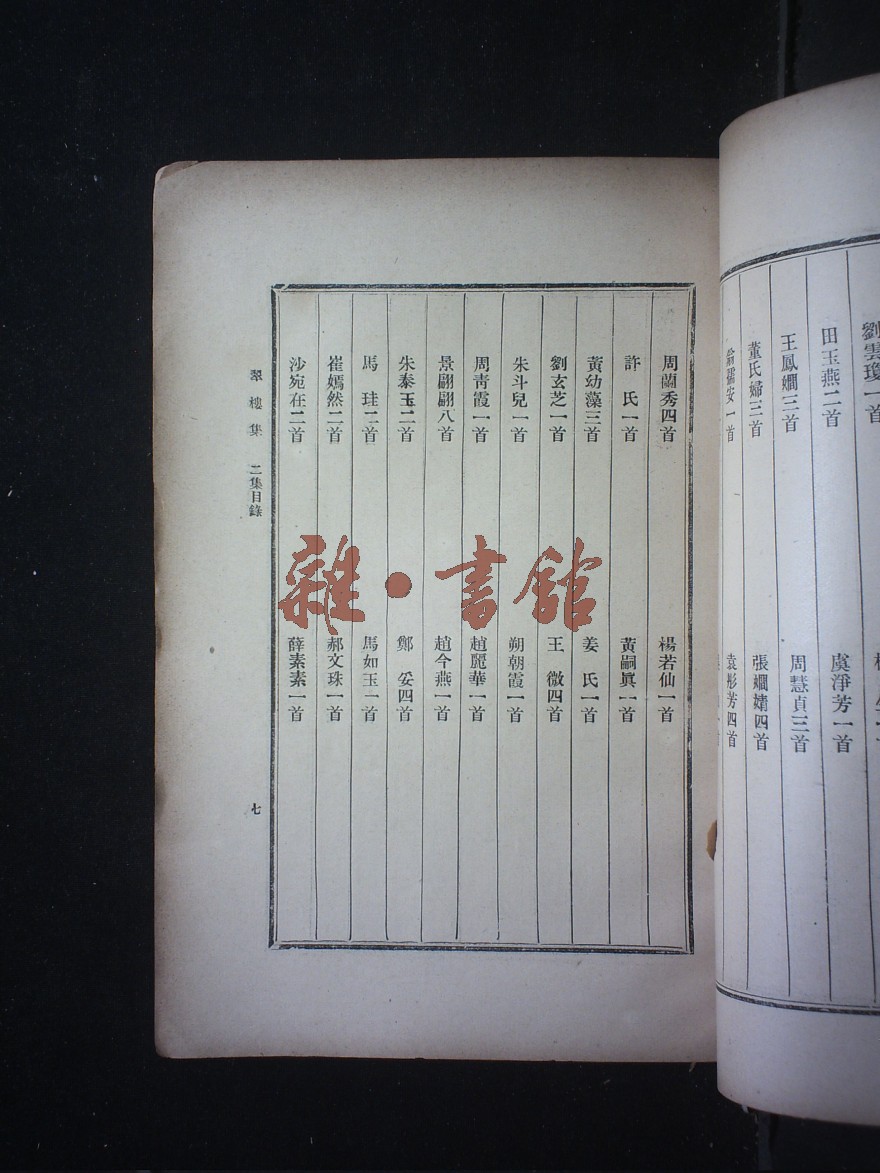 劉雲瓊一首
田玉燕二首
虞淨芳一首
王鳳嫺三首
周慧貞三首
董氏婦三首
張嫺婧四首
翁孺安一首
袁彤芳四首
周蘭秀四首
楊若仙一首
許氏一首
黃嗣眞一首
黃幼藻三首
姜氏一首
劉玄芝一首
王微四首
朱斗兒一首
朔朝霞一首
周青霞一首
趙麗華一首
景翩翩八首
趙今燕一首
朱泰玉二首
鄭妥四首
馬珪二首
馬如玉一首
崔嫣然二首
郝文珠一首
沙宛在二首
薛素素一首
翠樓集 二集目錄
七
雜·書館